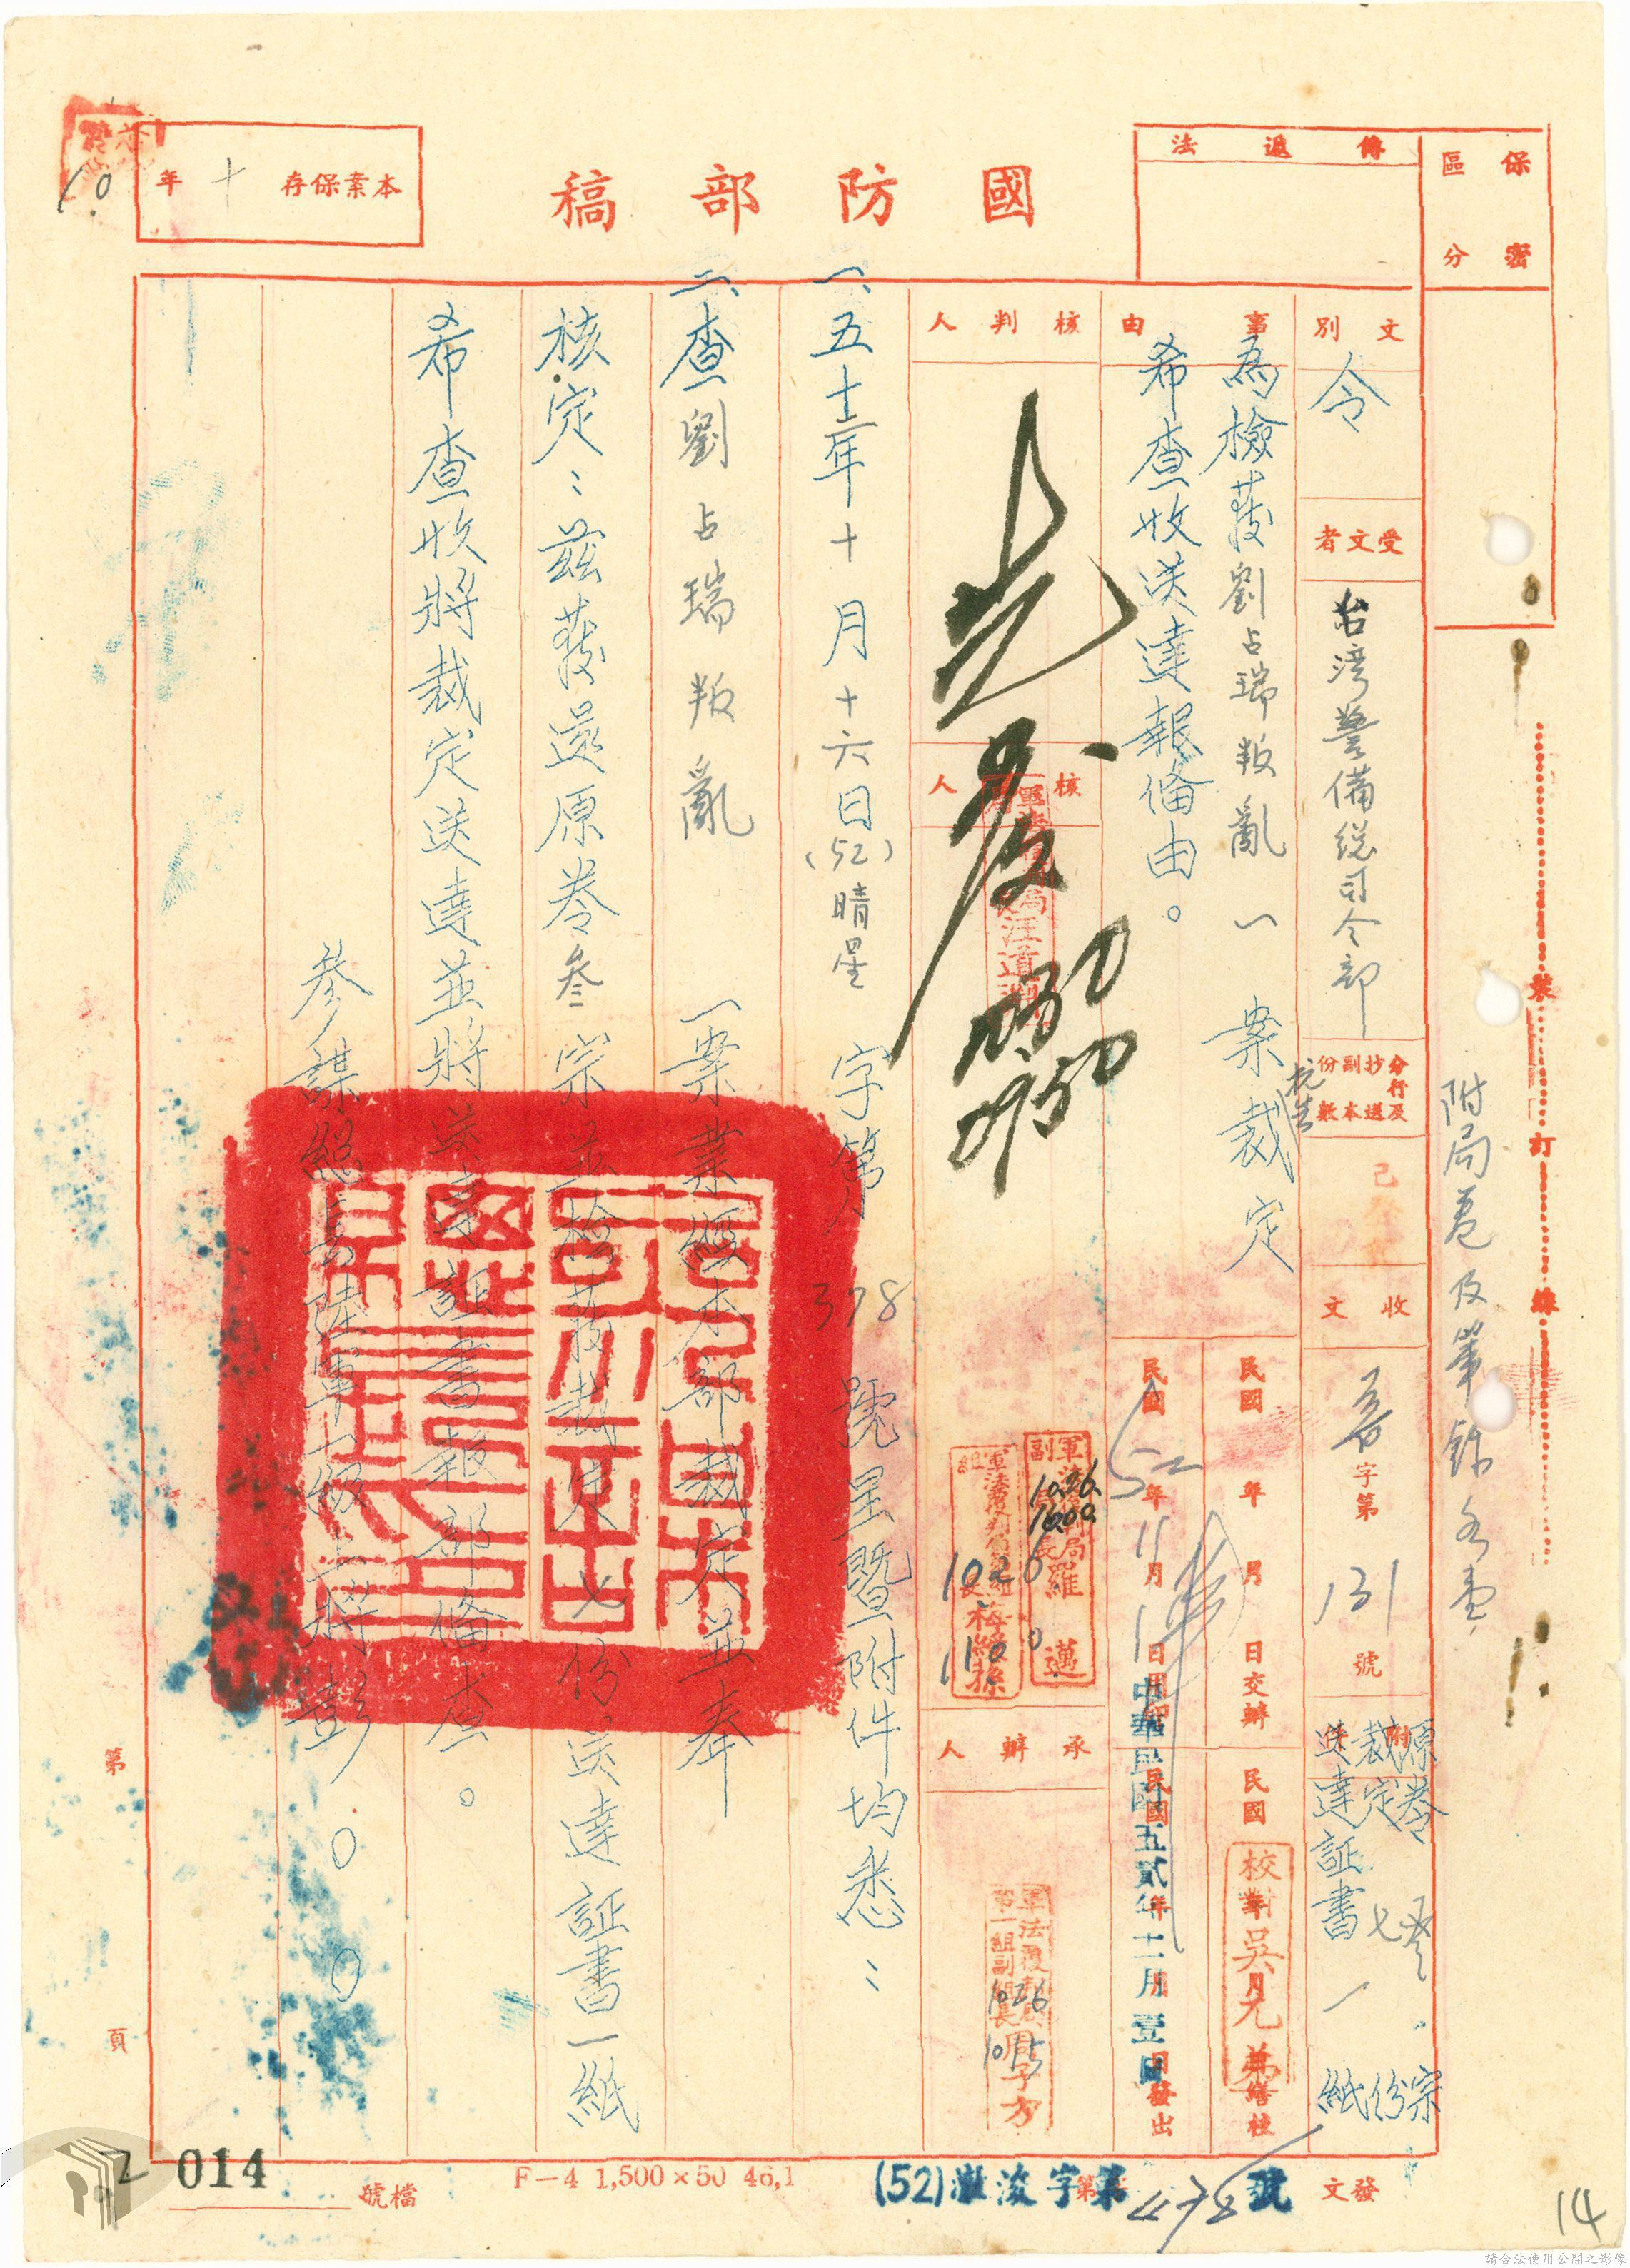 國防部稿
本案保存十年
傳遞法
保密
區分
文別
令
受文者
台湾警備總司令部
分行及抄送副本份數
收文
字第131號
附件
原卷叁宗
裁定七份
送達証書一紙
附局卷及筆錄各壹
事由
為檢發劉占瑞叛亂一案裁定
希查收送達報備由。
民國 年 月 日交辦
民國52年11月1日
民國 年 月 日繕校
校對吳元弟
中華民國五貳年十一月壹日
發出
核判人
核人
承辦人
軍法覆判局副局長羅邁
軍法覆判局組長梅綬蓀
軍法覆判局第一組副組長周子方
一、五十二年十月十六日(52)晴星字第378號呈暨附件均悉:
二、查劉占瑞叛亂一案業經本部裁定並奉
核定:茲發還原卷叁宗並檢發裁定七份送達証書一紙
希查收將裁定送達並將送達証書報部備查。
參謀總長陸軍一級上將彭○○
裝
訂
線
第頁
檔號
014
F-4 1,500×50 46,1
發文
(52)澈浚字第478號
14
請合法使用公開之影像